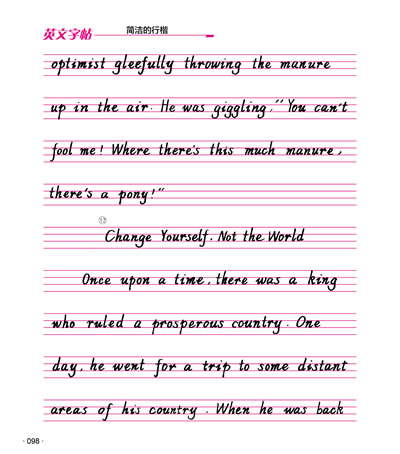 英文字帖
简洁的行楷
optimist gleefully throwing the manure
up in the air. He was giggling,"You can't
fool me! Where there's this much manure,
there's a pony!"
Change Yourself. Not the World
Once upon a time, there was a king
who ruled a prosperous country. One
day, he went for a trip to some distant
areas of his country . When he was back
·098·